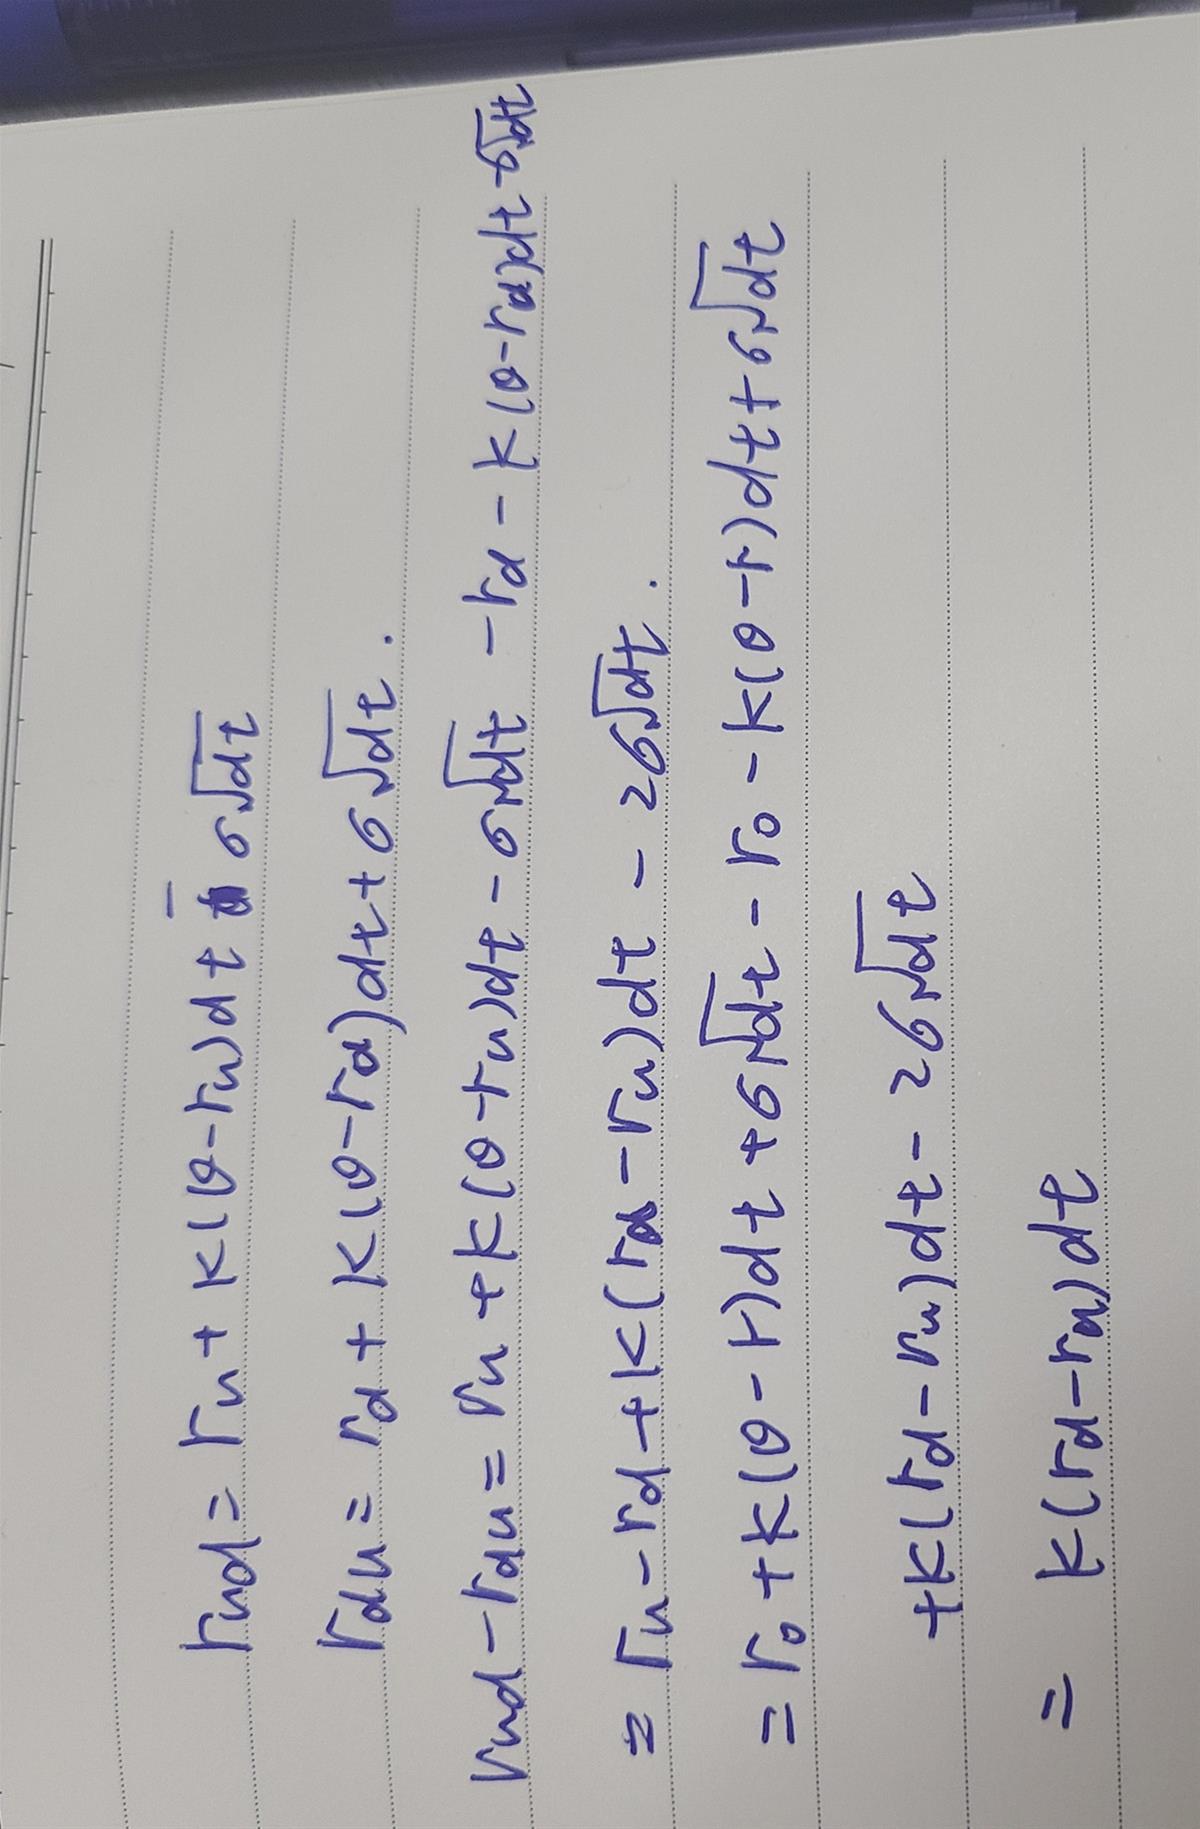 r_ud = r_u + k(θ-r_u)dt - σ√dt
r_du = r_d + k(θ-r_d)dt + σ√dt.
r_ud - r_du = r_u + k(θ-r_u)dt - σ√dt - r_d - k(θ-r_d)dt - σ√dt
= r_u - r_d + k(r_d - r_u)dt - 2σ√dt.
= r_0 + k(θ-r)dt + σ√dt - r_0 - k(θ-r)dt + σ√dt
+k(r_d - r_u)dt - 2σ√dt
= k(r_d - r_u)dt